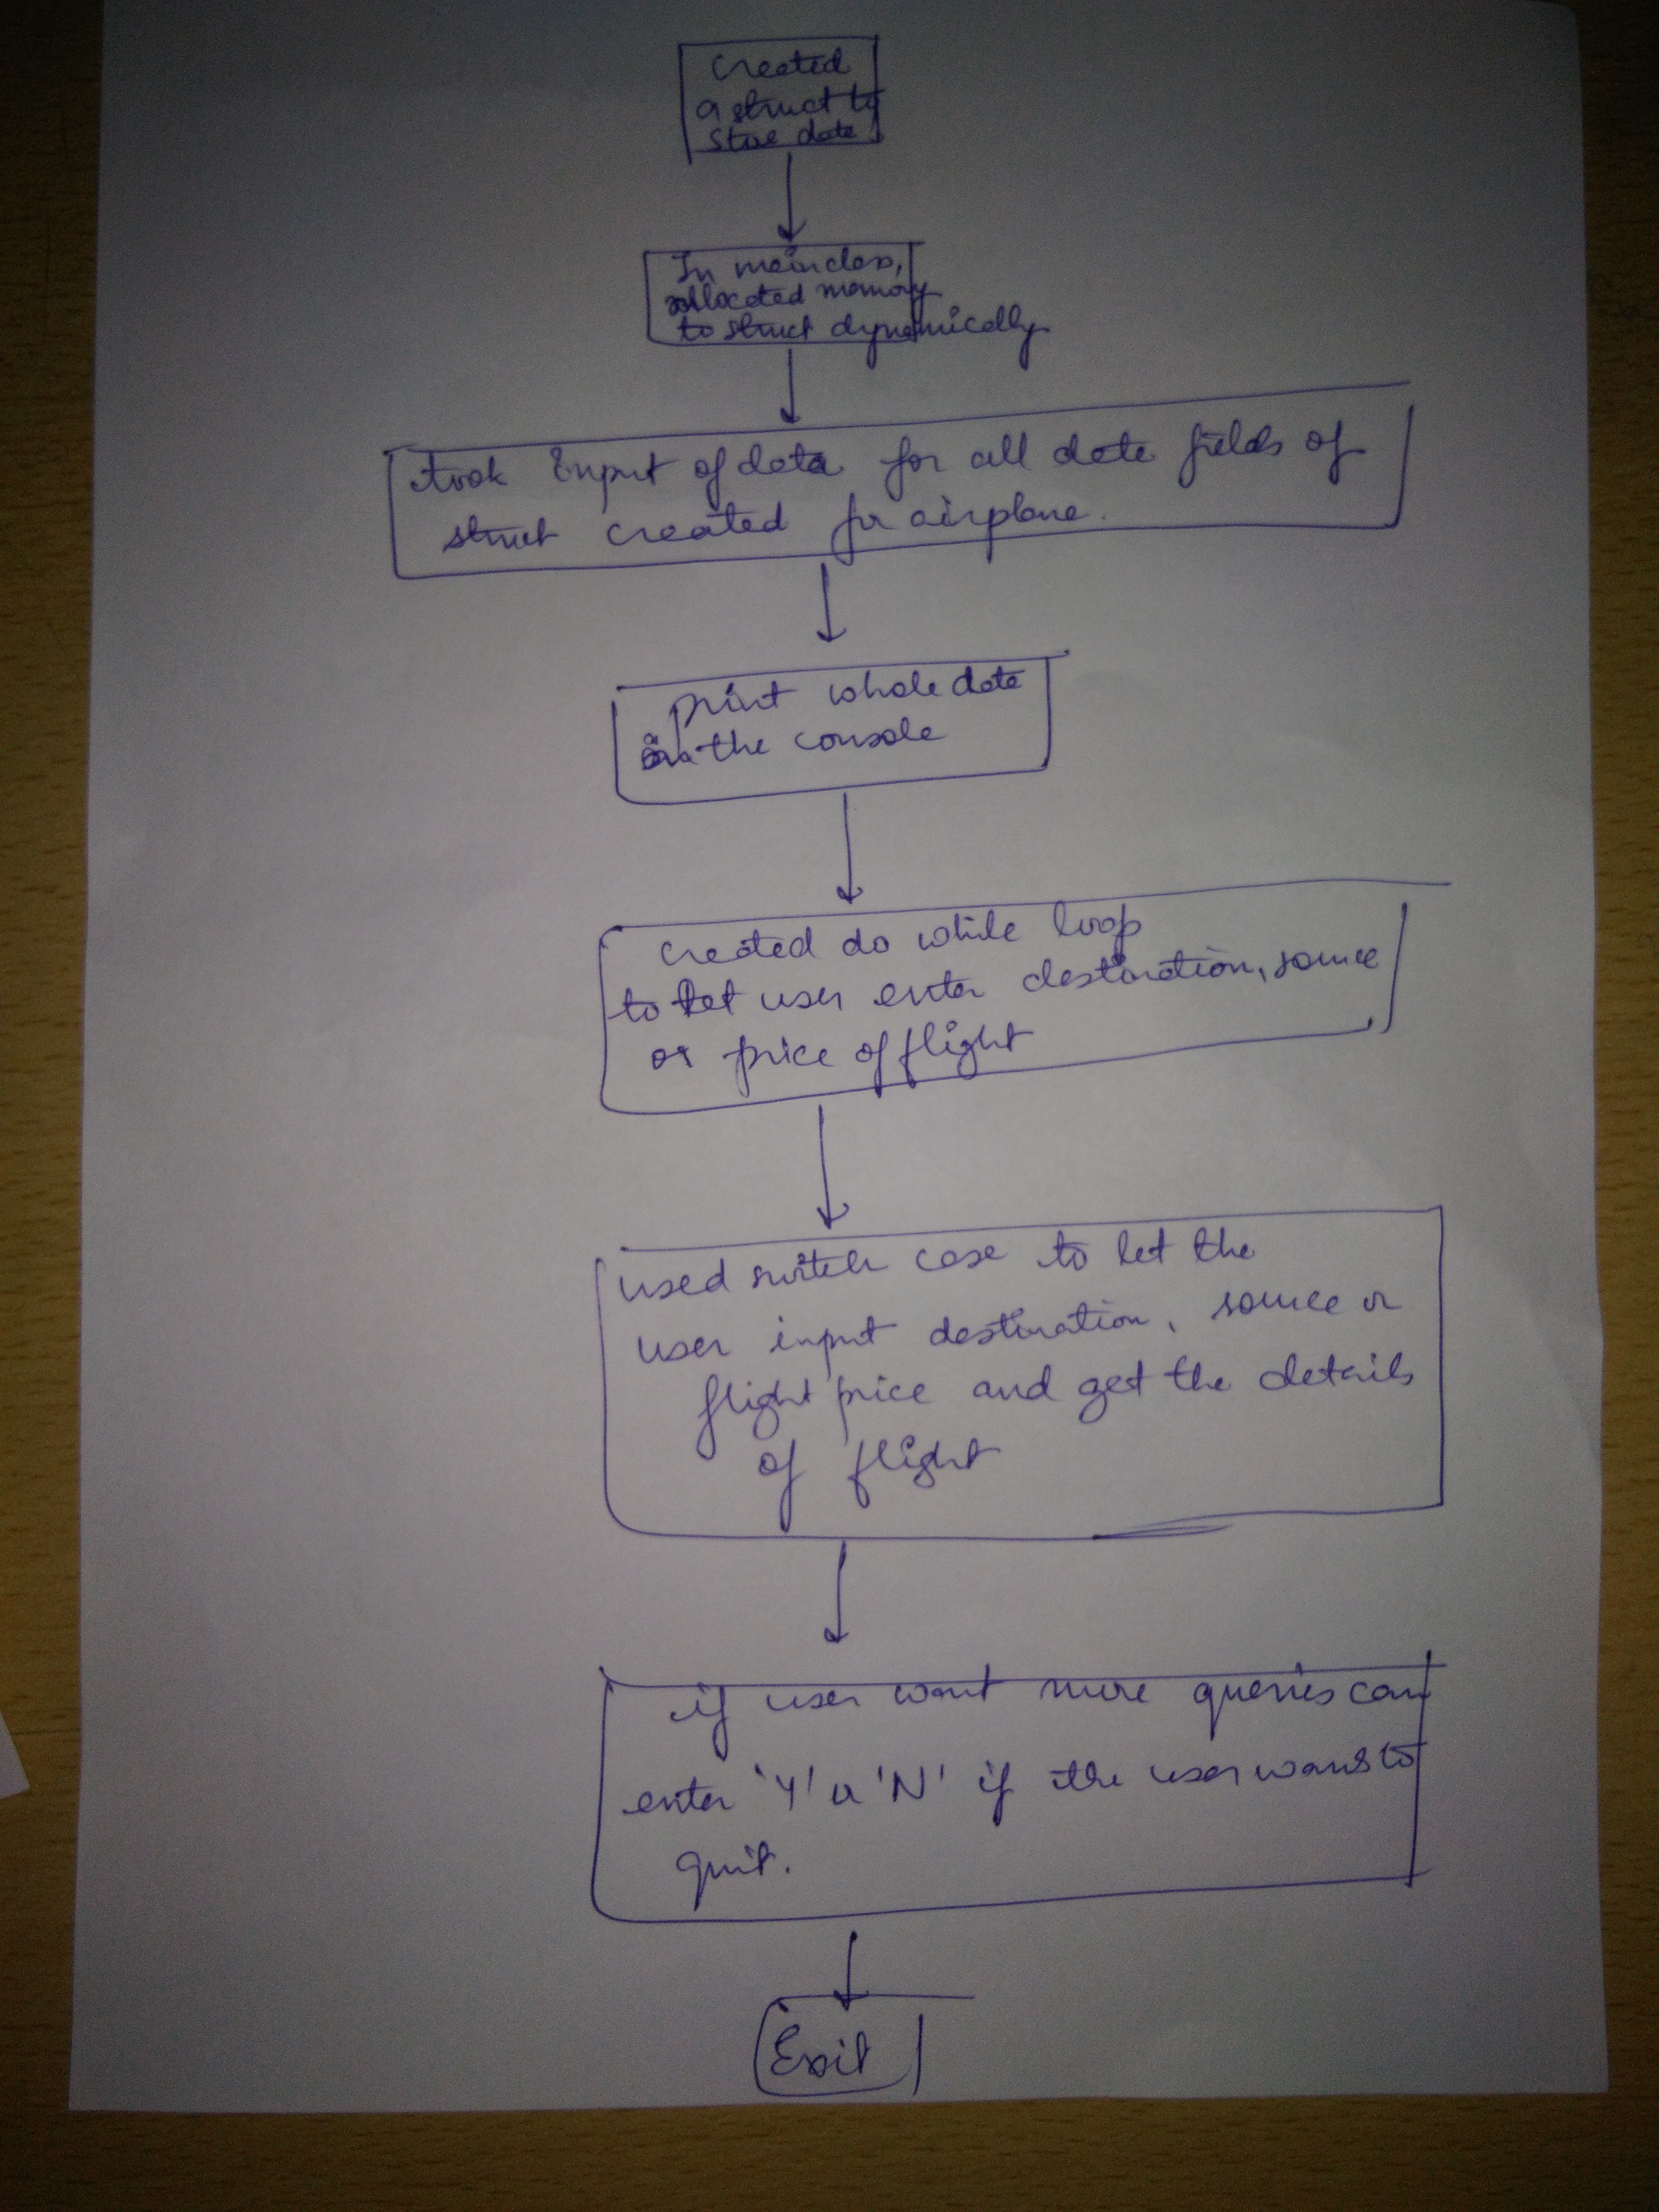 Created
a struct to
store data
In main class,
allocated memory
to struct dynamically
took Input of data for all data fields of
struct created for airplane.
print whole data
on the console
created do while loop
to let user enter destination, source
or price of flight
used switch case to let the
user input destination, source or
flight price and get the details
of flight
if user want more queries can
enter 'Y' or 'N' if the user wants to
quit.
Exit